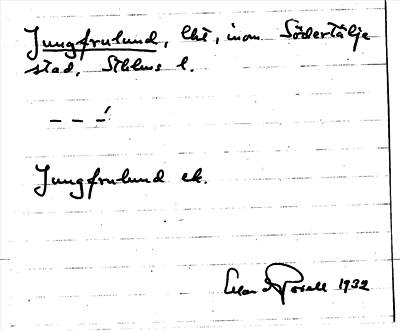 Jungfrulund, lht, inom Södertälje
stad, Sthlms l.
– – –́
Jungfrulund ek.
1932